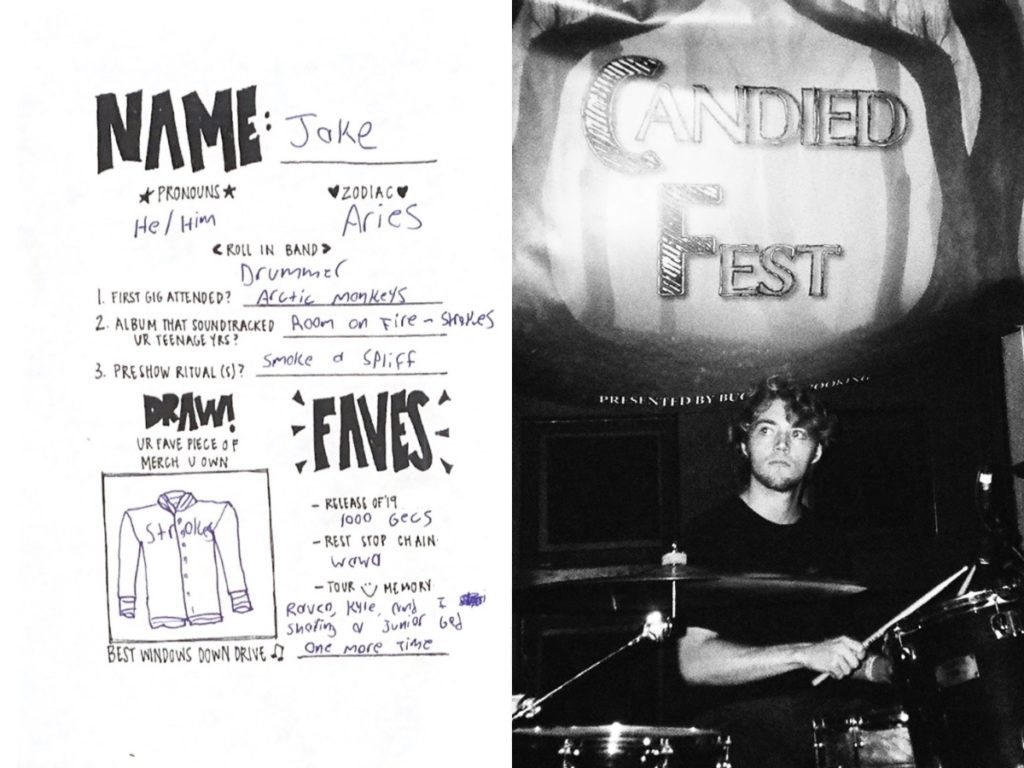 NAME: Jake
★ PRONOUNS ★
He/Him
♥ ZODIAC ♥
Aries
< ROLL IN BAND >
Drummer
1. FIRST GIG ATTENDED? Arctic Monkeys
2. ALBUM THAT SOUNDTRACKED UR TEENAGE YRS? Room on Fire - Strokes
3. PRESHOW RITUAL(S)? Smoke a Spliff
DRAW!
UR FAVE PIECE OF
MERCH U OWN
Strokes
FAVES
- RELEASE OF '19
1000 Gecs
- REST STOP CHAIN
Wawa
- TOUR MEMORY
Raven, Kyle, and I
sharing a junior bed
BEST WINDOWS DOWN DRIVE ♫ One More Time
CANDIED
FEST
PRESENTED BY